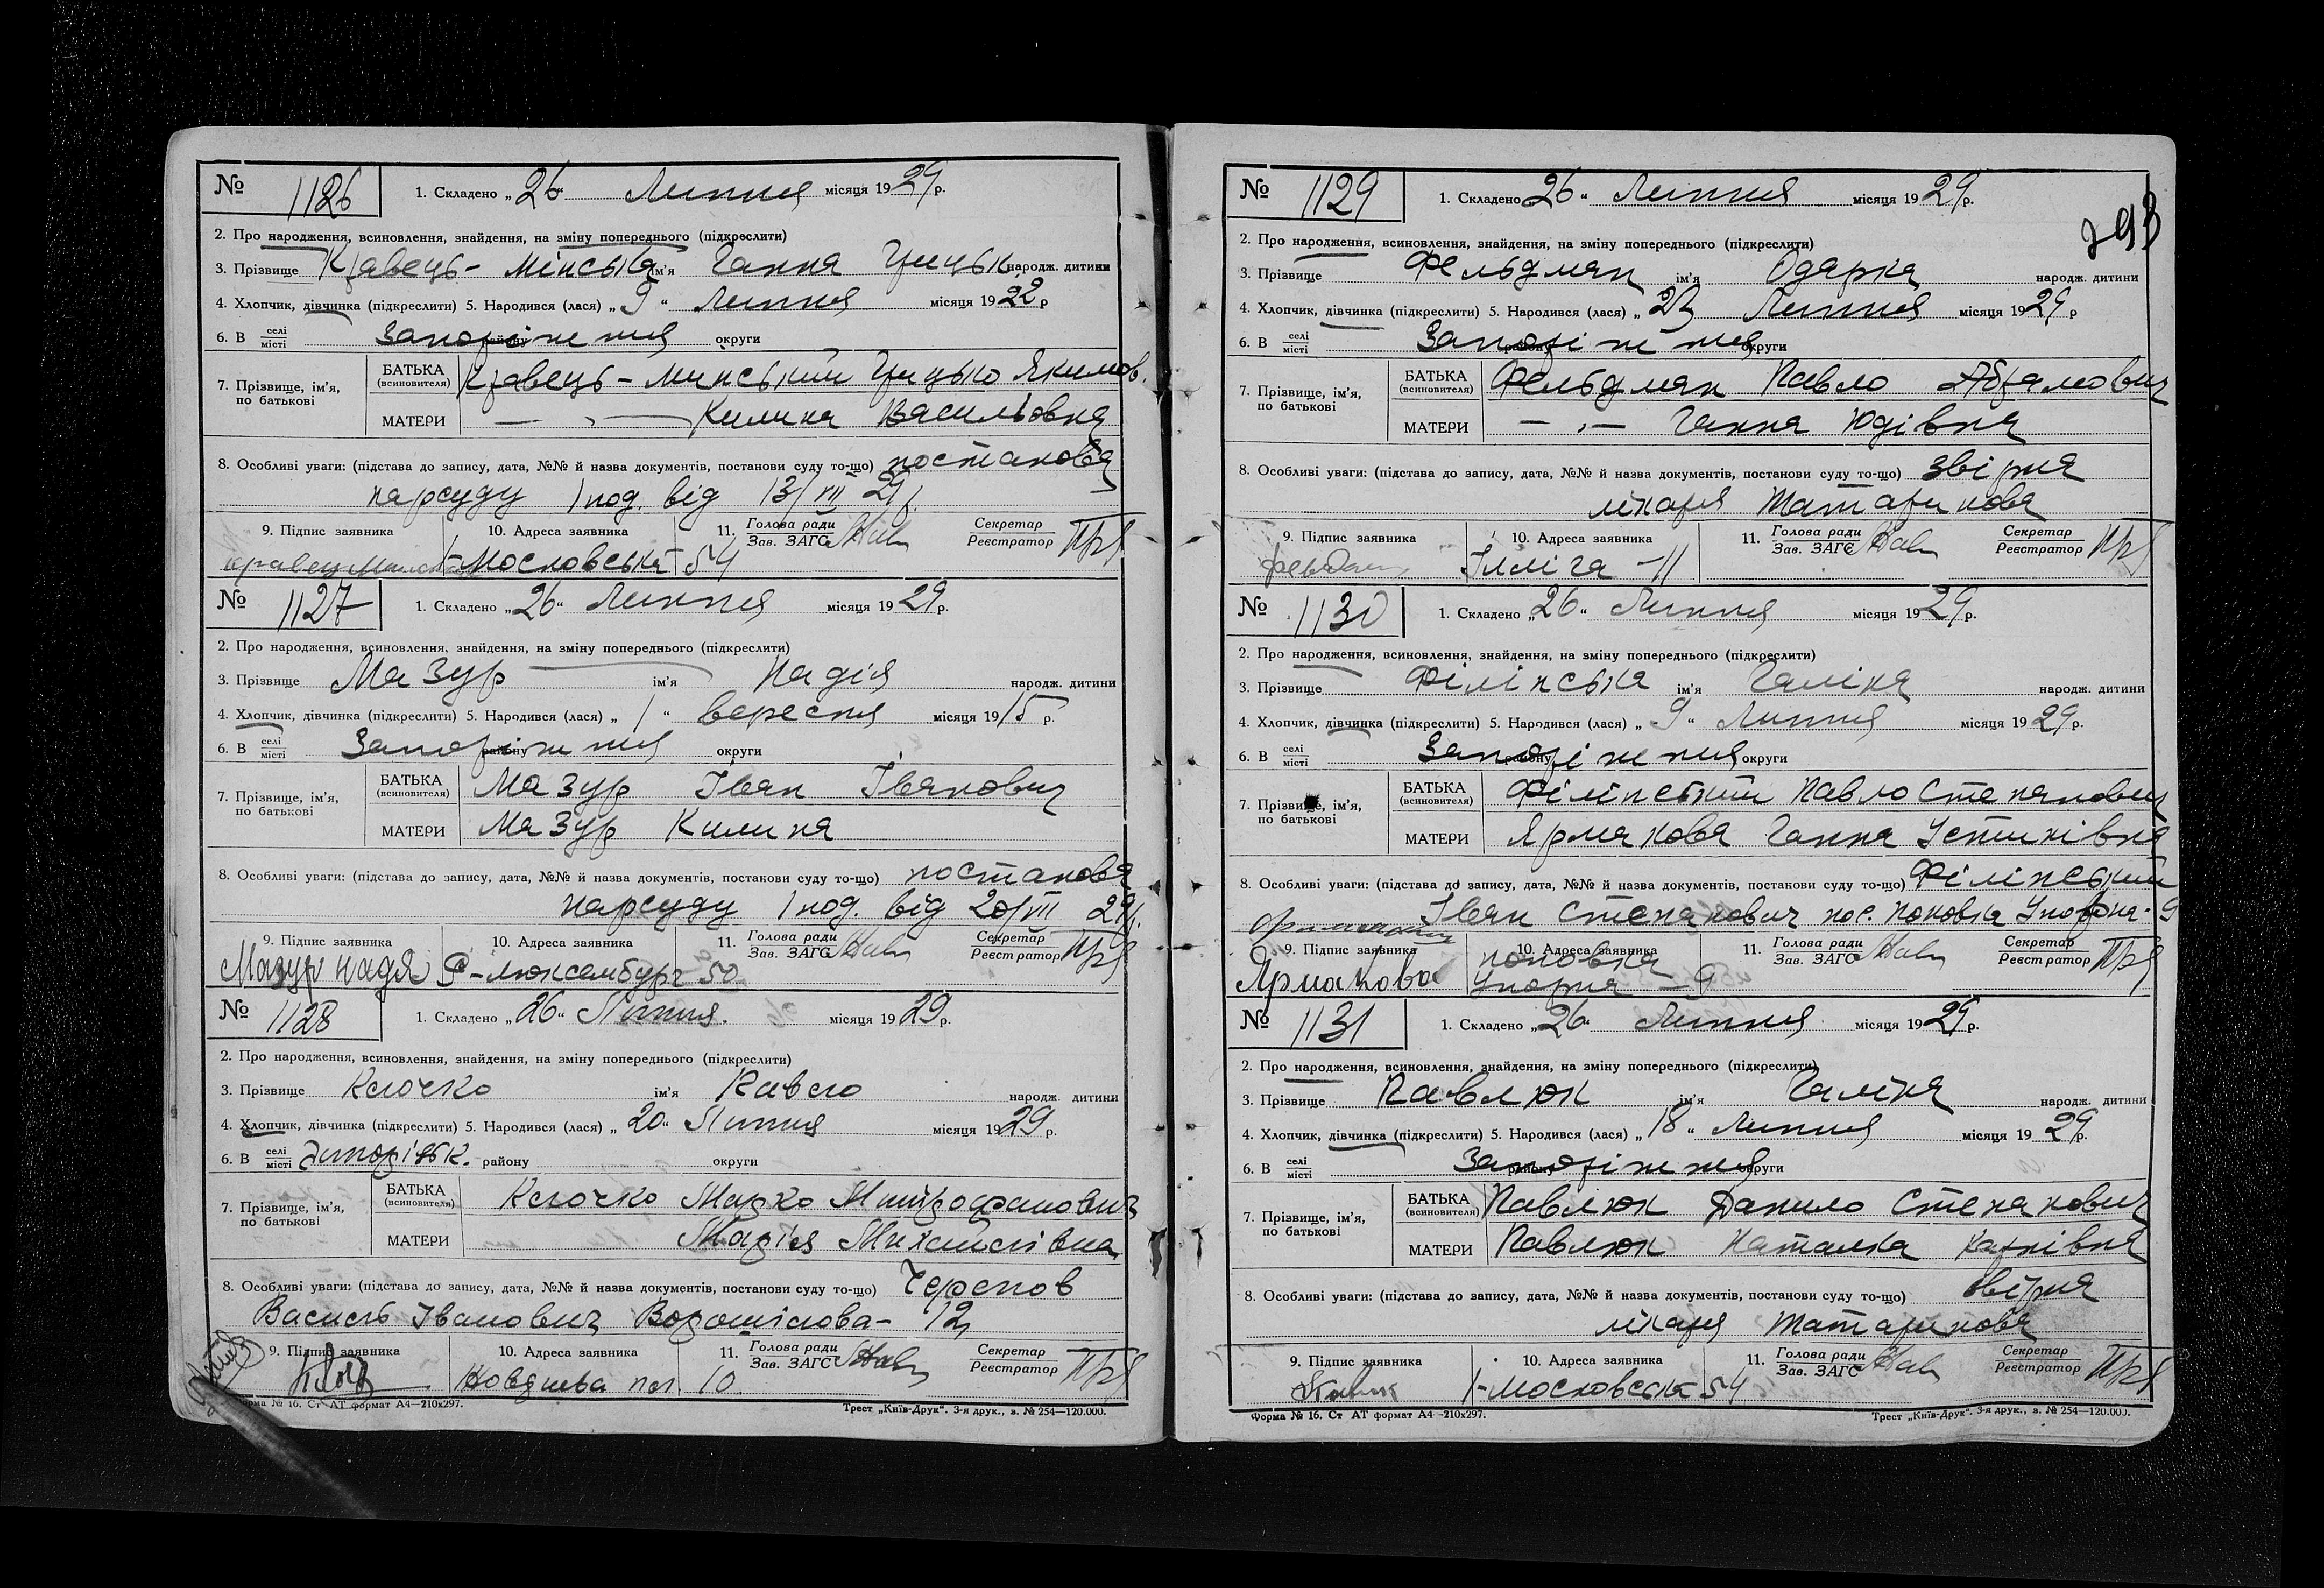 № 1126 1. Складено „26“ Липня місяця 1929 р.
2. Про народження, всиновлення, знайдення, на зміну попереднього (підкреслити)
3. Прізвище Кравець-Мінська ім'я Ганна Грицьк. народж. дитини
4. Хлопчик, дівчинка (підкреслити) 5. Народився (лася) „9“ Липня місяця 1922 р
6. В селі місті Запоріжжя району округи
7. Прізвище, ім'я, по батькові БАТЬКА (всиновителя) Кравець-Минський Грицько Якимов.
МАТЕРИ — „ — Килина Васильовна
8. Особливі уваги: (підстава до запису, дата, №№ й назва документів, постанови суду то-що) постанова
нарсуду 1 под. від 13/VII 29 р.
9. Підпис заявника 10. Адреса заявника 11. Голова ради Зав. ЗАГС Секретар Реєстратор
1-Мословська 54
№ 1127 1. Складено „26“ Липня місяця 1929 р.
2. Про народження, всиновлення, знайдення, на зміну попереднього (підкреслити)
3. Прізвище Мазур ім'я Надія народж. дитини
4. Хлопчик, дівчинка (підкреслити) 5. Народився (лася) „1“ вересня місяця 1915 р.
6. В селі місті Запоріжжя району округи
7. Прізвище, ім'я, по батькові БАТЬКА (всиновителя) Мазур Іван Іванович
МАТЕРИ Мазур Килина
8. Особливі уваги: (підстава до запису, дата, №№ й назва документів, постанови суду то-що) постанова
нарсуду 1 под. від 20/VII 29 р.
9. Підпис заявника 10. Адреса заявника 11. Голова ради Зав. ЗАГС Секретар Реєстратор
Мазур надя Р-люксембург 50
№ 1128 1. Складено „26“ Липня місяця 1929 р.
2. Про народження, всиновлення, знайдення, на зміну попереднього (підкреслити)
3. Прізвище Клочко ім'я Павло народж. дитини
4. Хлопчик, дівчинка (підкреслити) 5. Народився (лася) „20“ Липня місяця 1929 р.
6. В селі місті Запоріжж. району округи
7. Прізвище, ім'я, по батькові БАТЬКА (всиновителя) Клочко Марко Митрофанович
МАТЕРИ Марія Михайлівна
8. Особливі уваги: (підстава до запису, дата, №№ й назва документів, постанови суду то-що) Черепов
Василь Іванович Ворошілова - 12
9. Підпис заявника 10. Адреса заявника 11. Голова ради Зав. ЗАГС Секретар Реєстратор
10
Форма № 16. Ст АТ формат А4—210х297. Трест „Київ-Друк“. 3-я друк., з. № 254—120.000.
293
№ 1129 1. Складено „26“ Липня місяця 1929 р.
2. Про народження, всиновлення, знайдення, на зміну попереднього (підкреслити)
3. Прізвище Фельдман ім'я Одарка народж. дитини
4. Хлопчик, дівчинка (підкреслити) 5. Народився (лася) „23 Липня місяця 1929 р
6. В селі місті Запоріжжя району округи
7. Прізвище, ім'я, по батькові БАТЬКА (всиновителя) Фельдман Павло Абрамович
МАТЕРИ — „ — Ганна Юдівна
8. Особливі уваги: (підстава до запису, дата, №№ й назва документів, постанови суду то-що) звірка
лікаря Татаринова
9. Підпис заявника 10. Адреса заявника 11. Голова ради Зав. ЗАГС Секретар Реєстратор
Ілліча - 11
№ 1130 1. Складено „26“ Липня місяця 1929 р.
2. Про народження, всиновлення, знайдення, на зміну попереднього (підкреслити)
3. Прізвище Філінська ім'я Галіна народж. дитини
4. Хлопчик, дівчинка (підкреслити) 5. Народився (лася) „9“ Липня місяця 1929 р.
6. В селі місті Запоріжжя району округи
7. Прізвище, ім'я, по батькові БАТЬКА (всиновителя) Філінський Павло Степанович
МАТЕРИ Ярмакова Ганна Устинівна
8. Особливі уваги: (підстава до запису, дата, №№ й назва документів, постанови суду то-що) Філінський
Іван Степанович пос. поповка Упорна - 9
9. Підпис заявника 10. Адреса заявника 11. Голова ради Зав. ЗАГС Секретар Реєстратор
Ярмакова поповка Упорна - 9
№ 1131 1. Складено „26“ Липня місяця 1929 р.
2. Про народження, всиновлення, знайдення, на зміну попереднього (підкреслити)
3. Прізвище Павлюк ім'я Галіна народж. дитини
4. Хлопчик, дівчинка (підкреслити) 5. Народився (лася) „18“ Липня місяця 1929 р.
6. В селі місті Запоріжжя району округи
7. Прізвище, ім'я, по батькові БАТЬКА (всиновителя) Павлюк Данило Степанович
МАТЕРИ Павлюк Наталка Карпівна
8. Особливі уваги: (підстава до запису, дата, №№ й назва документів, постанови суду то-що) звірка
лікаря Татаринова
9. Підпис заявника 10. Адреса заявника 11. Голова ради Зав. ЗАГС Секретар Реєстратор
1-Московська 54
Форма № 16. Ст АТ формат А4—210х297. Трест „Київ-Друк“. 3-я друк., з. № 254—120.000.